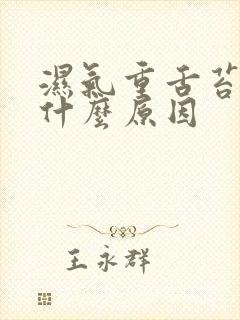 濕氣重舌苔
什麼原因
王永群